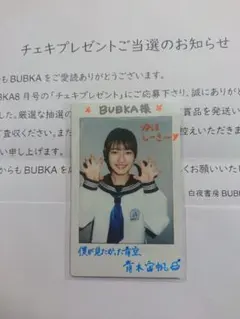 チェキプレゼントご当選のお知らせ
もBUBKAをご愛読ありがとうございます。
BUBKA8月号の「チェキプレゼント」にご応募下さり、誠にありがと
した。厳選な抽選の
賞品を発送い
査収ください。ま
控えいただきま
い申し上げます。
らもBUBKAを応
くお願いいたし
白夜書房BUBK
BUBKA様
ゆほ
しーきーョ
僕が見たかった青空
青木宙帆